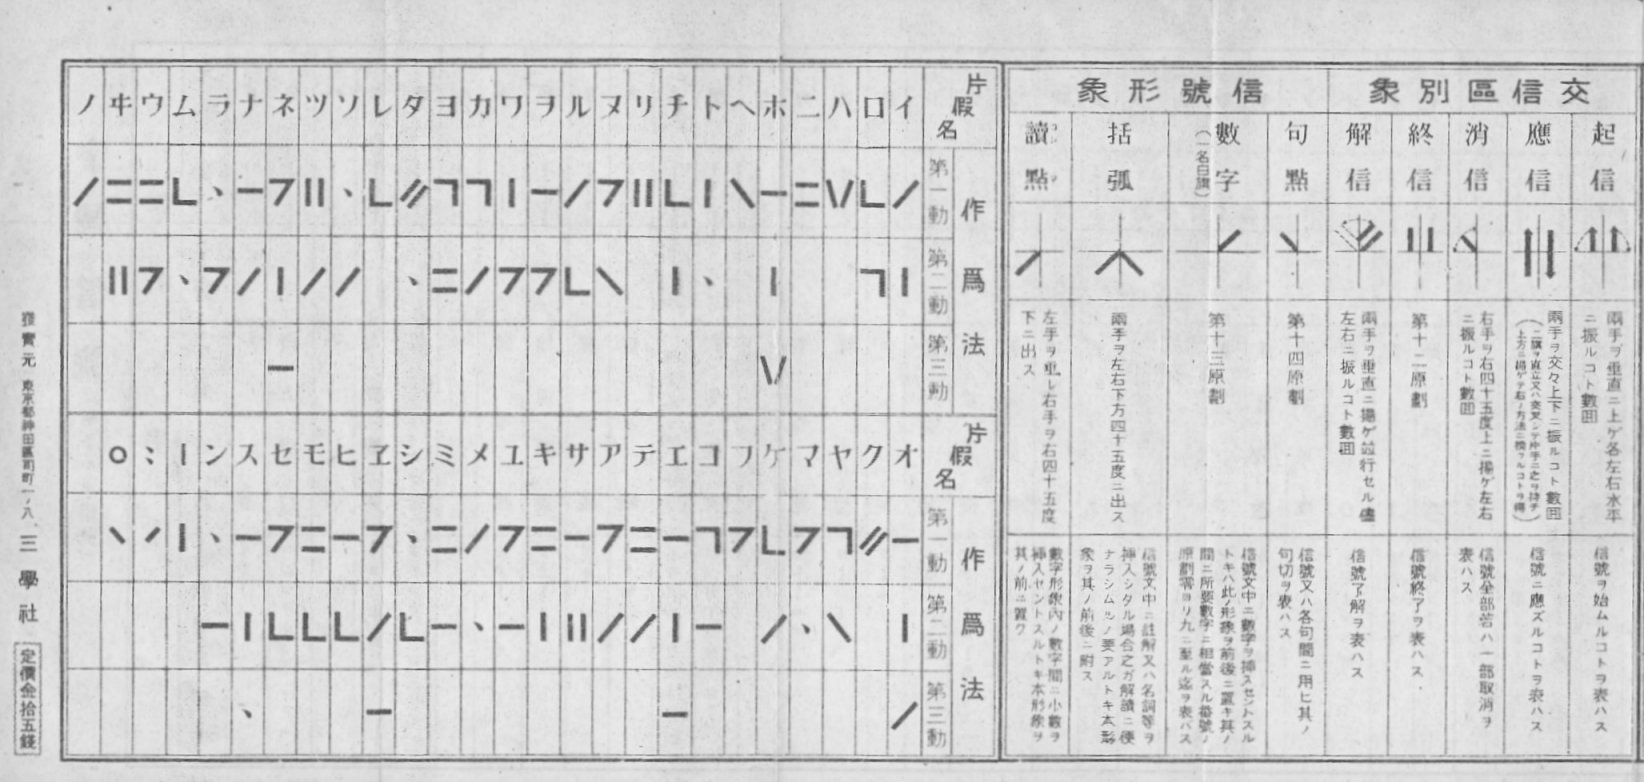 交信區別象
信號形象
起信
應信
消信
終信
解信
句點
數字
(一名白旗)
括弧
讀點
兩手ヲ垂直ニ上ゲ各左右水平
ニ振ルコト數囘
兩手ヲ交々上下ニ振ルコト數囘
右手ヲ右四十五度上ニ揚ゲ左右
ニ振ルコト數囘
第十二原劃
兩手ヲ垂直ニ揚ゲ竝行セル儘
左右ニ振ルコト數囘
第十四原劃
第十三原劃
兩手ヲ左右下方四十五度ニ出ス
左手ヲ垂レ右手ヲ右四十五度
下ニ出ス
信號ヲ始ムルコトヲ表ハス
信號ニ應ズルコトヲ表ハス
信號全部若ハ一部取消ヲ
表ハス
信號終了ヲ表ハス
信號了解ヲ表ハス
信號又ハ各句間ニ用ヒ其ノ
句切ヲ表ハス
信號文中ニ數字ヲ挿スセントスル
トキハ此ノ形象ヲ前後ニ置キ其ノ
間ニ所要數字ニ相當スル番號ノ
原劃零ヨリ九ニ至ル迄ヲ表ハス
信號文中ニ註解又ハ名詞等ヲ
挿入シタル場合之ガ解讀ニ便
ナラシムルノ要アルトキ本形
象ヲ其ノ前後ニ附ス
數字形象內ノ數字間ニ小數ヲ
挿入セントスルトキ本形象ヲ
其ノ前ニ置ク
片假名
イ ロ ハ ニ ホ ヘ ト チ リ ヌ ル ヲ ワ カ ヨ タ レ ソ ツ ネ ナ ラ ム ウ ヰ ノ
作爲法
第一動
第二動
第三動
片假名
オ ク ヤ マ ケ フ コ エ テ ア サ キ ユ メ ミ シ ヱ ヒ モ セ ス ン ー ゛ ゜
作爲法
第一動
第二動
第三動
發賣元 東京都神田區司町一ノ八、三學社
定價金拾五錢